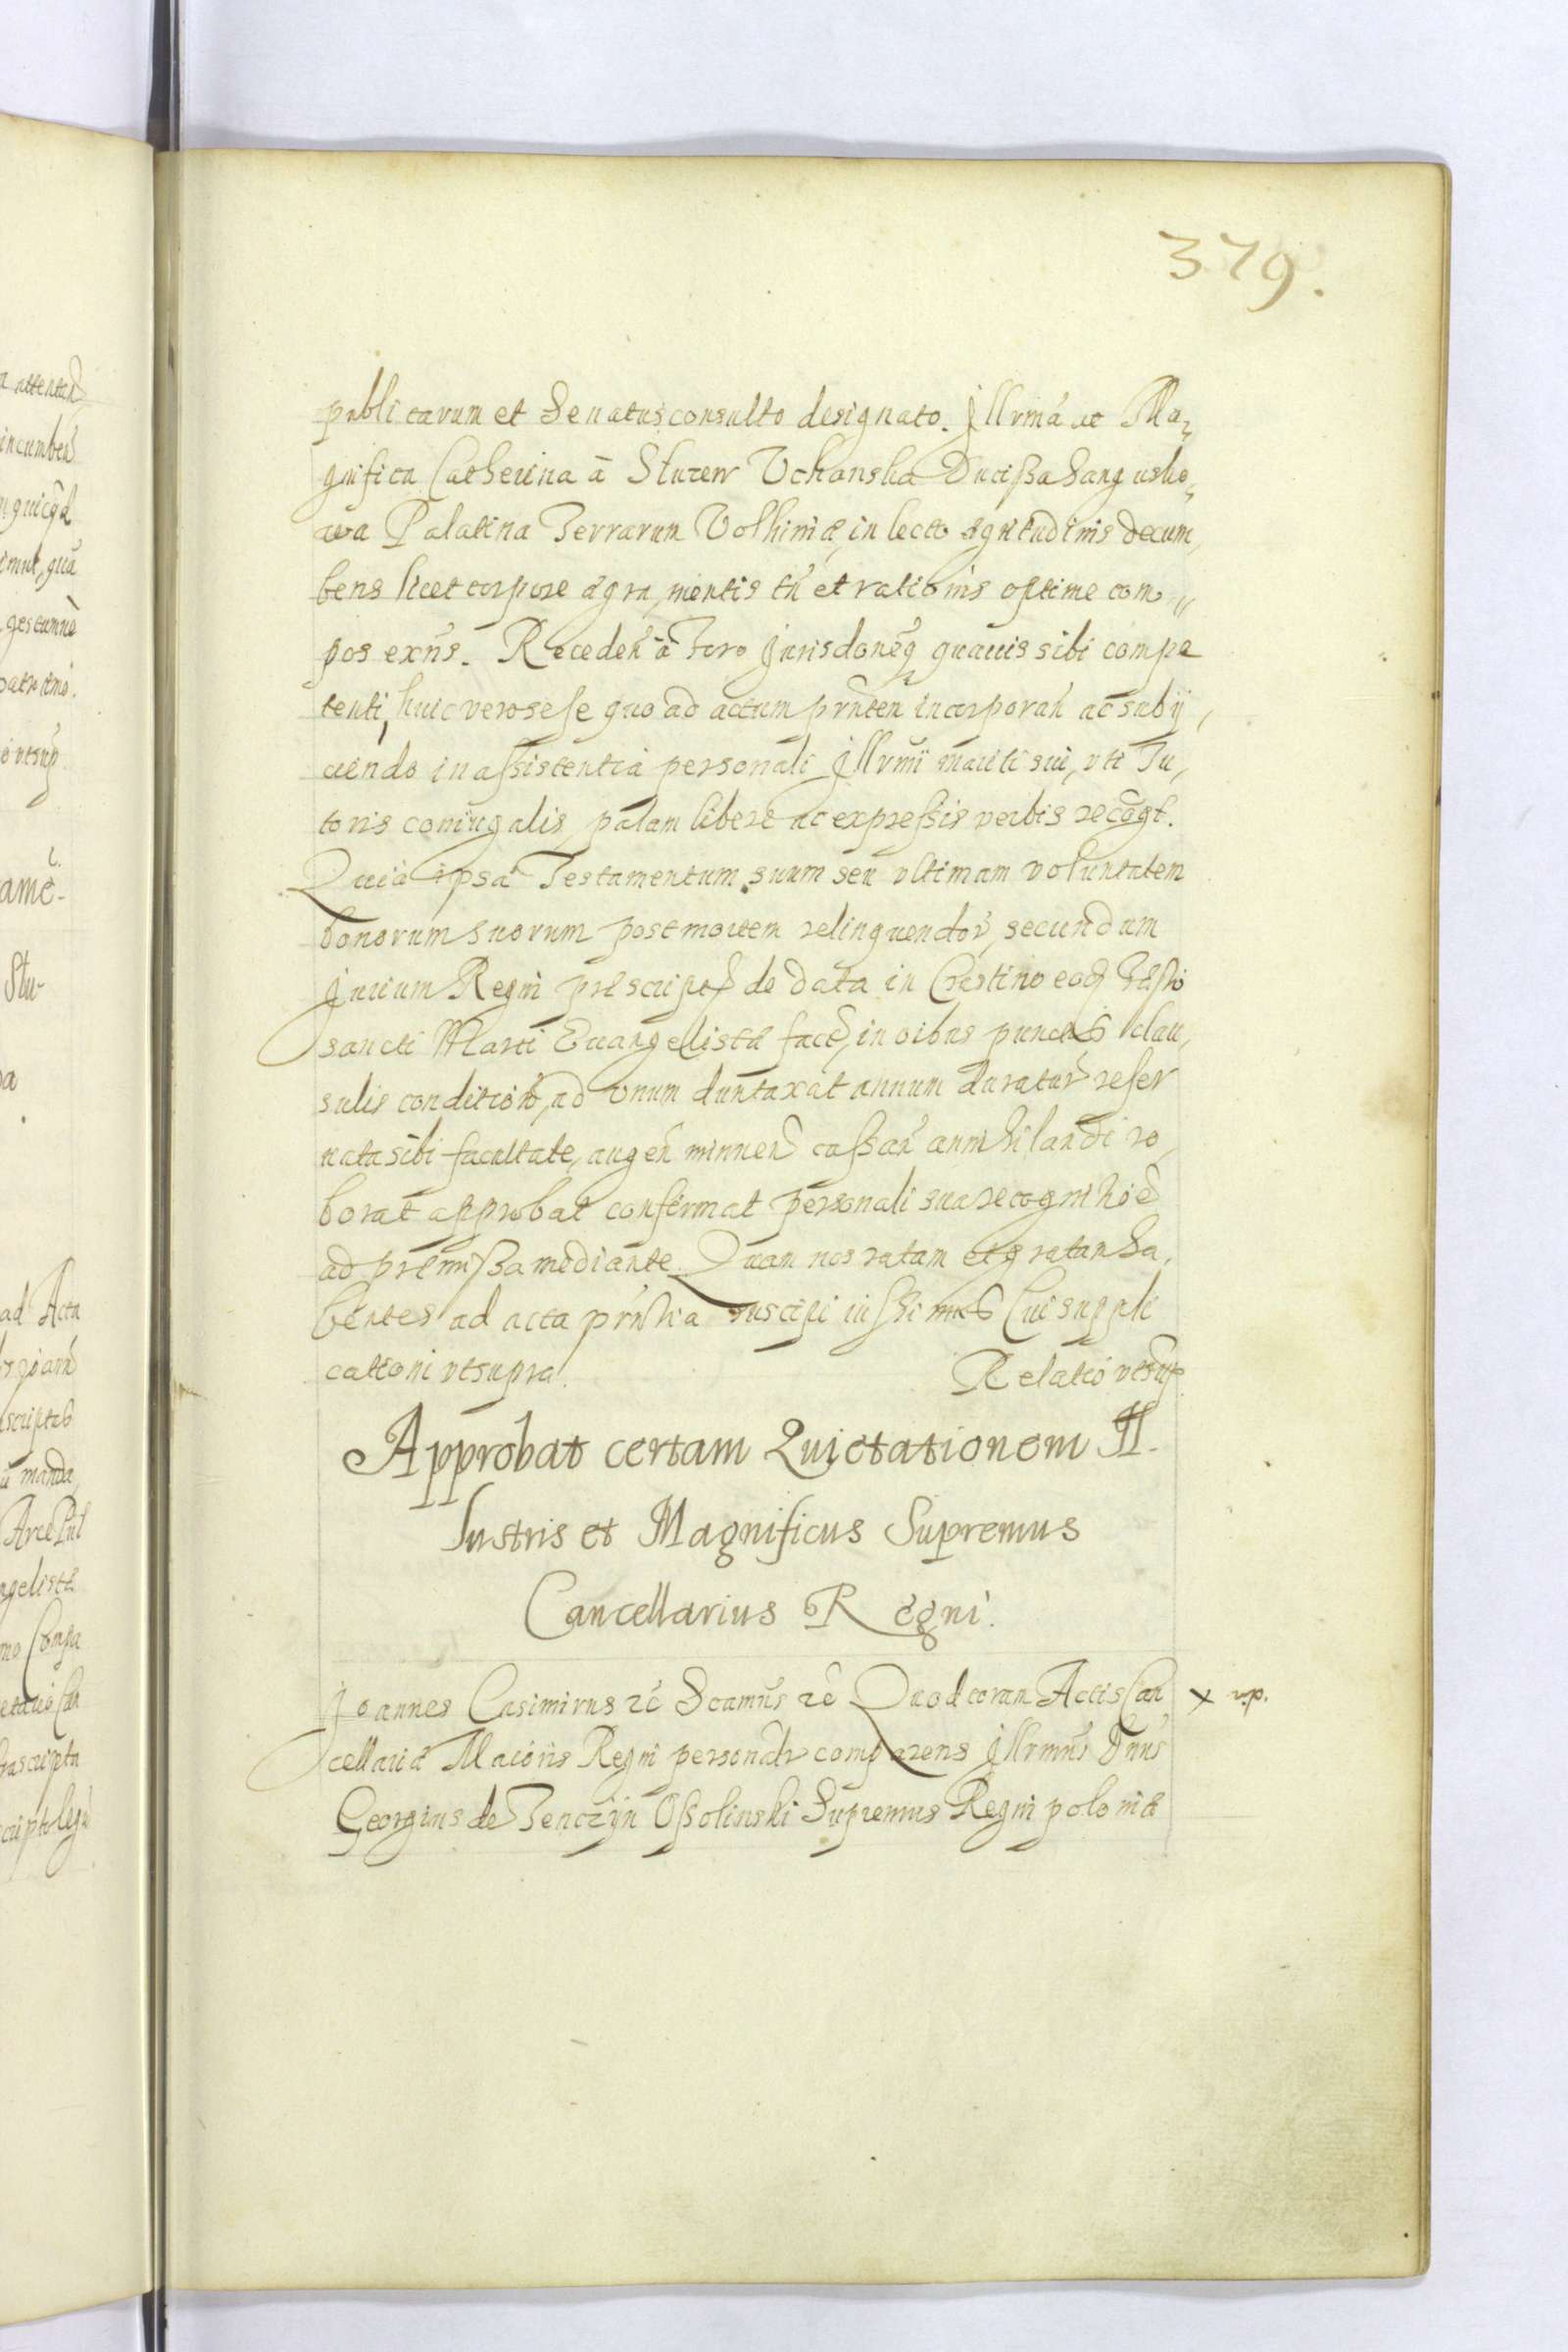 379.
publicarum et Senatusconsulto designato. Jllrmá ac Ma,
gnifica Catherina à Sluzew Vchanska Ducissa Sangusko,
wa Palatina Terrarum Volhiniæ, in lecto ægritudinis decum,
bens licet corpore ægra, mentis tñ et rationis optime com,,
pos exñs. Receden̄ à Foro Jurisdoneq̃ quauis sibi compe
tenti, huic vero sese quo ad actum prñtem incorporan̄ ac subij,
ciendo in assistentia personali Jllrmi mariti sui, vti Tu,
toris coniugalis, palam libere ac expressis verbis recogt.
Quia ipsa Testamentum suum seu vltimam voluntatem
bonorum suorum post mortem relinquendor̃, secundum
Jurium Regni præscript de data in Crastino eoq̃ Festo
sancti Marci Euangelistæ fact, in oibus punctis clau,
sulis conditioib, ad vnum duntaxat annum duratur̃ reser
uata sibi facultate, augen̄ minuen̄ cassan̄ annihilandi ro,
borat approbat confirmat personali sua recognitioe
ad præmissa mediante. Quam nos ratam et gratam ha,
bentes ad acta prñtia suscipi iussimus Cui suppli
cationi vt supra.
Relatio vt sup
Approbat certam Quietationem Il.
lustris et Magnificus Supremus
Cancellarius Regni.
Joannes Casimirus &c̃ Scamus &c̃ Quod coram Actis Can
x v.p.
cellariæ Maioris Regni personalr comparens Jllrmus Dnus
Georgius de Tenczyn Ossolinski Supremus Regni poloniæ
ad Acta
manda
Stu-